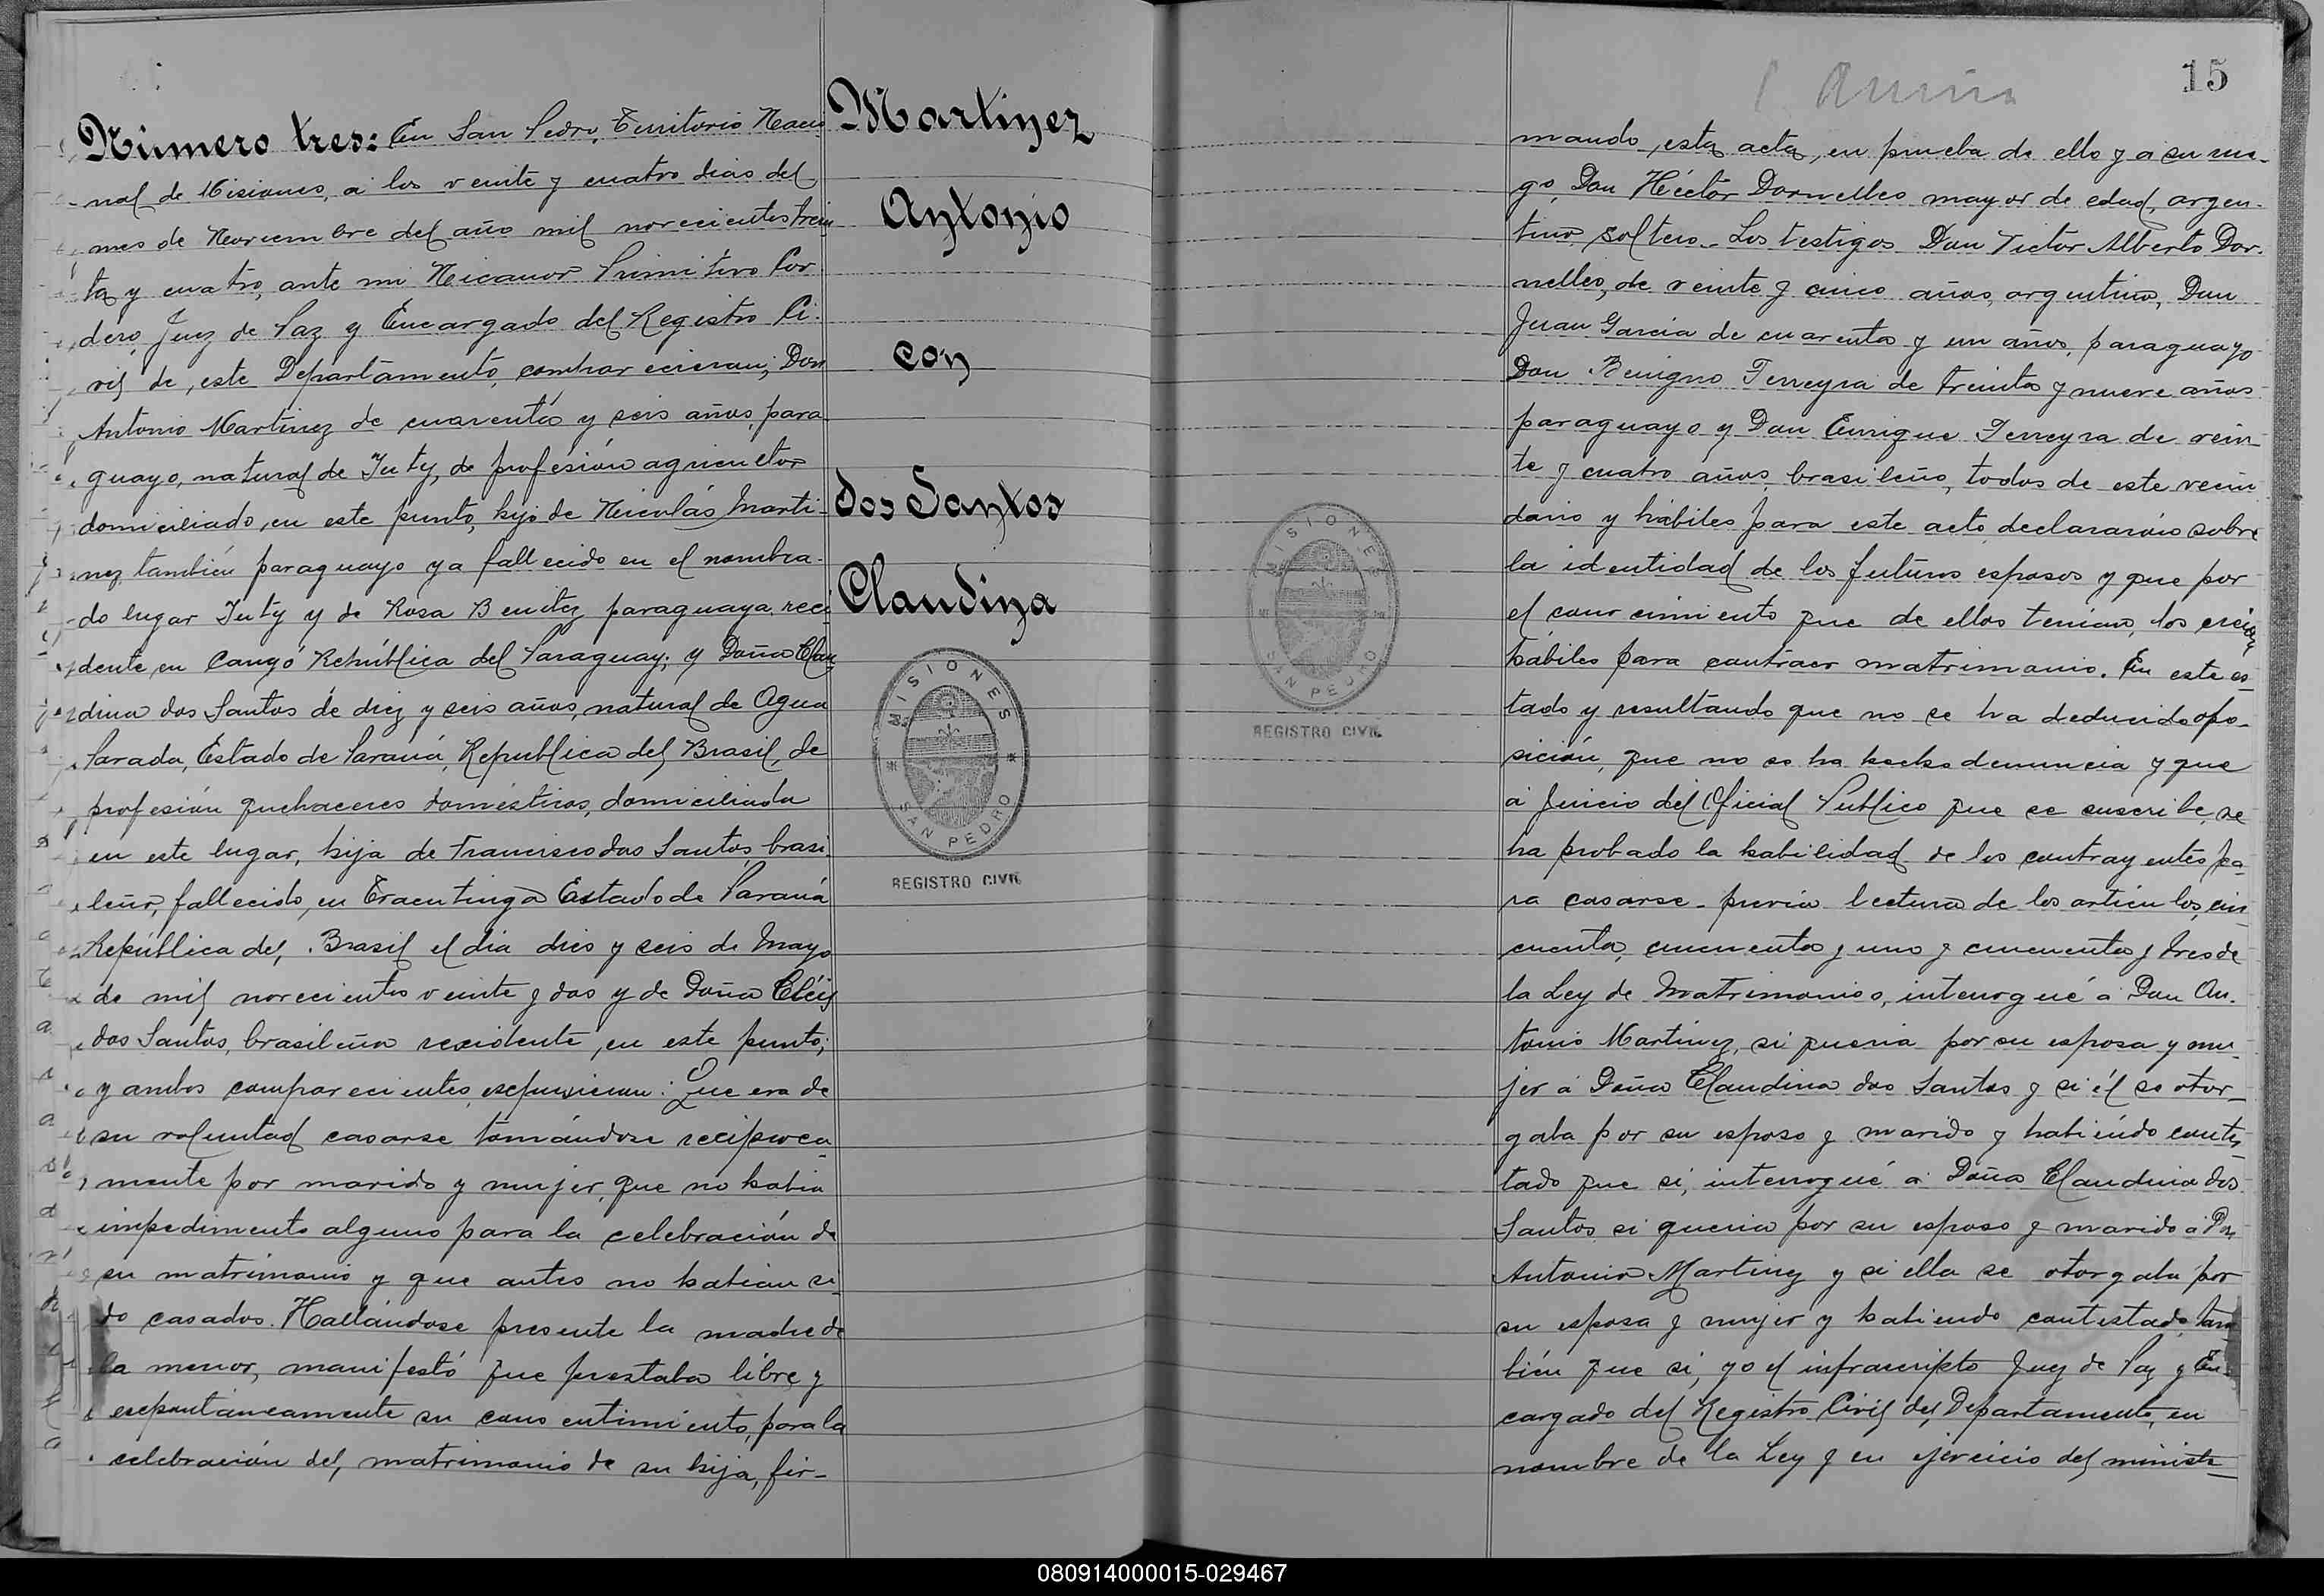 Número tres: En San Pedro, Territorio Nacio
nal de Misiones, a los veinte y cuatro dias del
mes de Noviembre del año mil novecientos trein
ta y cuatro, ante mi Nicanor Primitivo Cor
dero, Juez de Paz y Encargado del Registro Ci-
vil de, este Departamento, comparecieran; Don
Antonio Martinez de cuarenta y seis años, para
guayo, natural de Yuty, de profesión agricultor
domiciliado, en este punto, hijo de Nicolás Marti-
nez también paraguayo ya fallecido en el nombra-
do lugar Yuty y de Rosa Benitez paraguaya, resi
dente, en Cangó República del Paraguay; y Doña Clau
dina dos Santos de diez y seis años, natural de Agua
Parada, Estado de Paraná, Republica del Brasil, de
profesión quehaceres domésticos, domiciliada
en este lugar, hija de Francisco dos Santos, brasi-
leño, fallecido, en Estado de Paraná
República del, Brasil el dia dies y seis de Mayo
de mil novecientos veinte y dos y de Doña
dos Santos, brasileña residente, en este punto;
y ambos comparecientes, expusieron: Que era de
su voluntad casarse tomándose reciproca-
mente por marido y mujer, que no habia
impedimento alguno para la celebración de
su matrimonio y que antes no habian si-
do casados. Hallándose presente la madre de
la menor, manifestó que prestaba libre y
espontáneamente su consentimiento, para la
celebración del, matrimonio de su hija, fir-
Martinez
Antonio
con
dos Santos
Claudina
MISIONES
SAN PEDRO
REGISTRO CIVIL
15
mando, esta acta, en prueba de ello y a su rue-
go, Don Héctor Dornelles mayor de edad, argen-
tino, soltero. Los testigos Don Victor Alberto Dor-
nelles, de veinte y cinco años, argentino, Don
Juan Garcia de cuarenta y un años, paraguayo
Don Benigno Ferreyra de treinta y nueve años
paraguayo y Don Enrique Ferreyra de vein-
te y cuatro años, brasileño, todos de este vecin
dario y hábiles para este acto, declararón sobre
la identidad de los futuros esposos y que por
el conocimiento que de ellos tenian, los creian
hábiles para contraer matrimonio. En este es-
tado y resultando que no se ha deducido opo-
sición, que no se ha hecho denuncia y que
a juicio del Oficial Publico que se suscribe, se
ha probado la habilidad de los contrayentes pa-
ra casarse - previa lectura de los articulos, cin
cuenta, cincuenta y uno y cincuenta y tres de
la Ley de Matrimonios, interrogué a Don An-
tonio Martinez, si queria por su esposa y mu-
jer a Doña Claudina dos Santos y si él se otor-
gaba por su esposo y marido y habiendo contes-
tado que si, interrogué a Doña Claudina dos
Santos si queria por su esposo y marido a Don
Antonio Martinez y si ella se otorgaba por
su esposa y mujer y habiendo contestado tam
bién que si, yo el infrascripto Juez de Paz y En-
cargado del Registro Civil del, Departamento, en
nombre de la Ley y en ejercicio del ministe-
MISIONES
SAN PEDRO
REGISTRO CIVIL
080914000015-029467